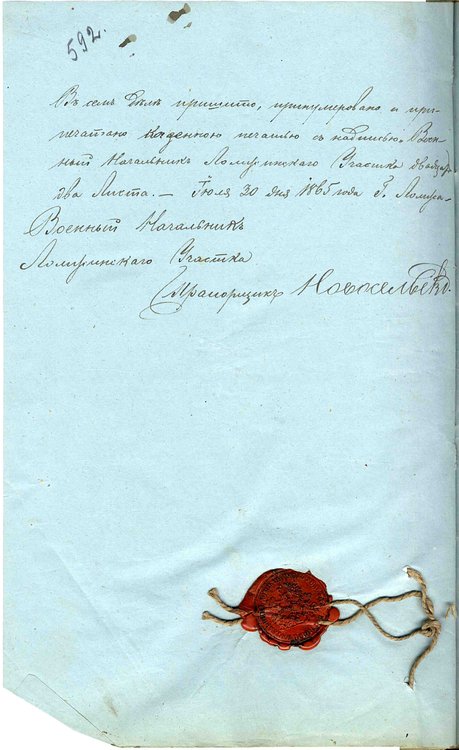 592.
Въ семъ Дѣлѣ пришито, принумеровано и при-
печатано казенною печатью съ надписью: Воен-
ный Начальникъ Ломжинскаго Участка двадцать
два Листа. — Іюля 30 дня 1865 года Г. Ломжа —
Военный Начальникъ
Ломжинскаго Участка
Прапорщикъ